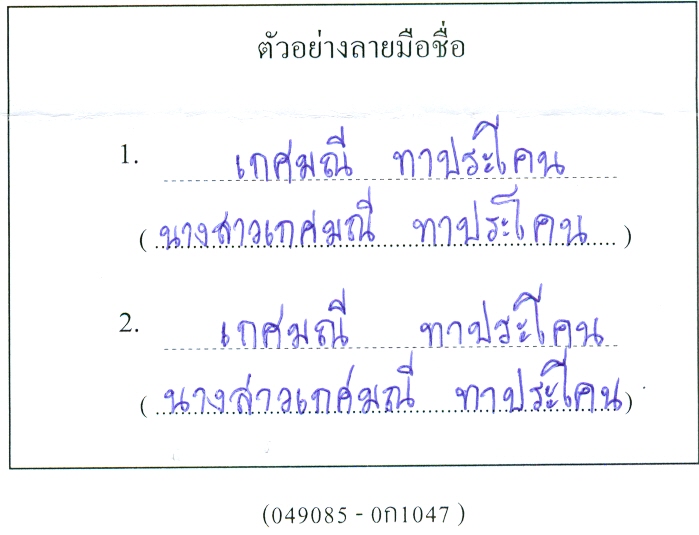 ตัวอย่างลายมือชื่อ
1. เกศมณี ทาประโคน
( นางสาวเกศมณี ทาประโคน )
2. เกศมณี ทาประโคน
( นางสาวเกศมณี ทาประโคน )
(049085 - 0ก1047 )